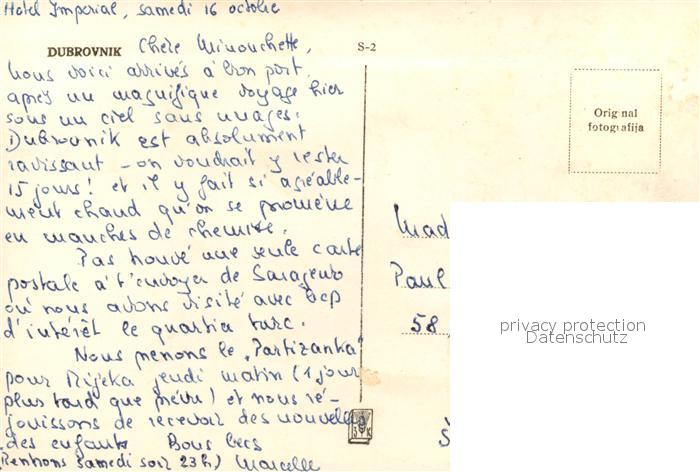 Hotel Imperial, samedi 16 octobre
DUBROVNIK Chère Minouchette,
S-2
nous voici arrivés à bon port,
après un magnifique voyage hier
sous un ciel sans nuages.
Dubrovnik est absolument
ravissant - on voudrait y rester
15 jours! et il y fait si agréable-
ment chaud qu'on se promène
en manches de chemise.
Pas trouvé une seule carte
postale à t'envoyer de Sarajevo
où nous avons visité avec bcp
d'intérêt le quartier turc.
Nous prenons le "Partizanka"
pour Rijeka jeudi matin (1 jour
plus tard que prévu) et nous ré-
jouissons de recevoir des nouvelles
des enfants Bons becs
Rentrons samedi soir 23h) Marcelle
Original
fotografija
Mad
Paul
58
privacy protection
Datenschutz